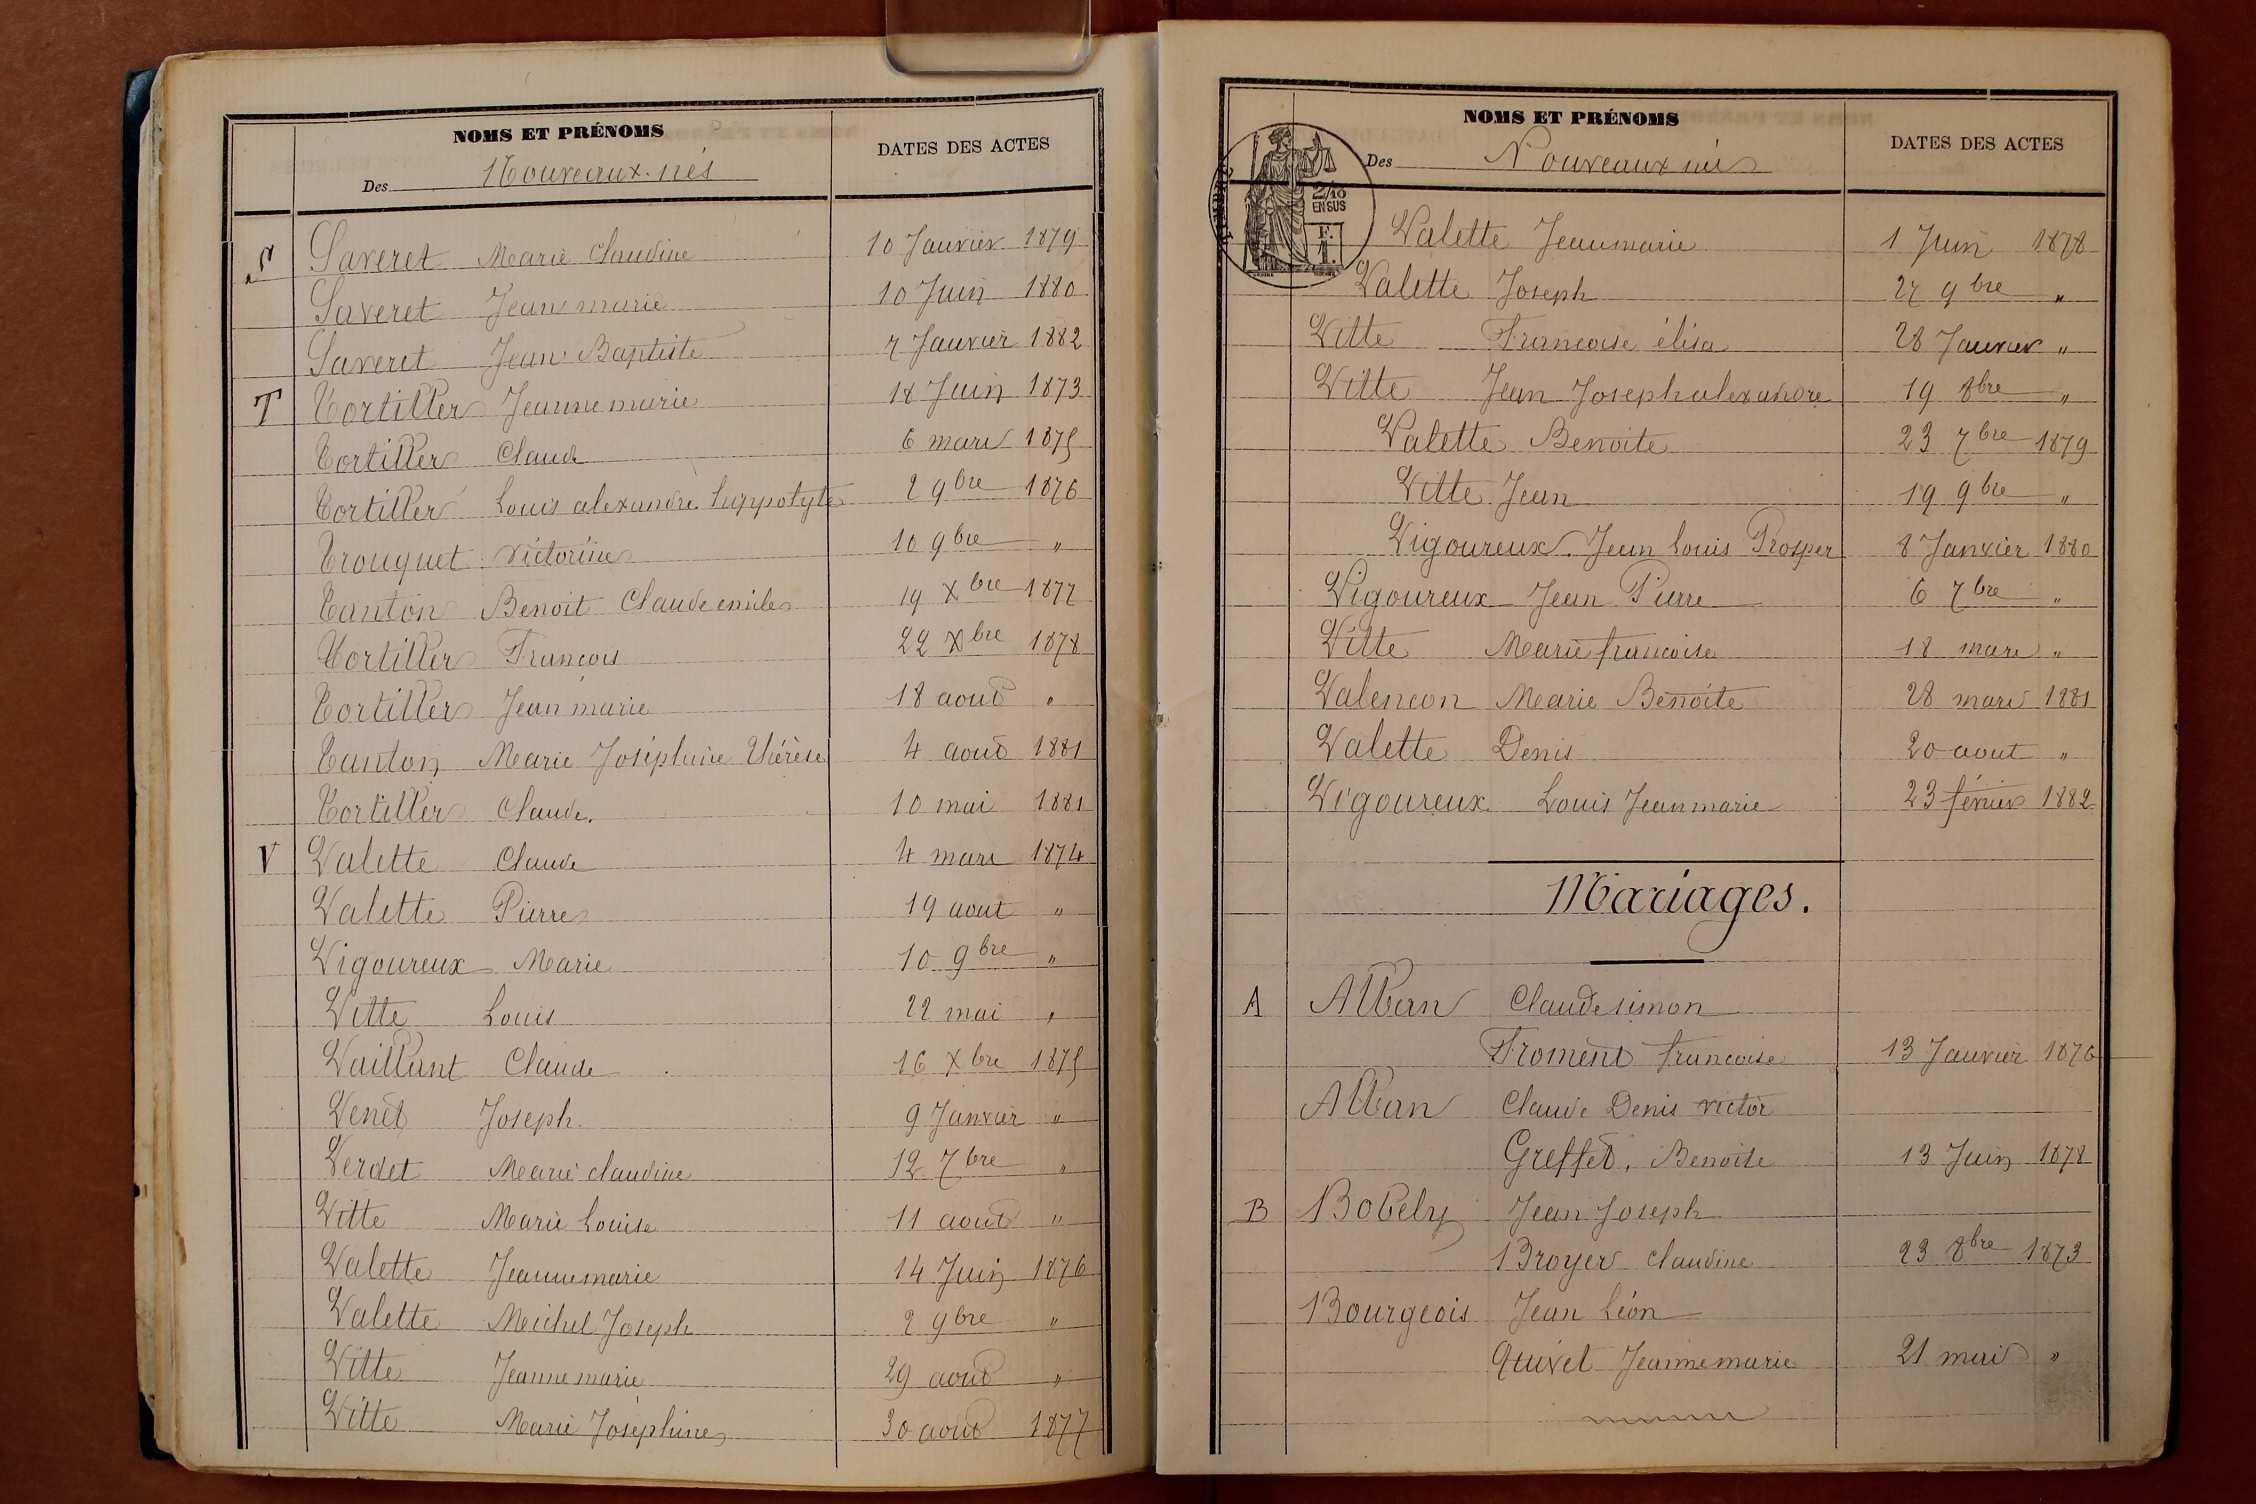 NOMS ET PRÉNOMS
Des Nouveaux-nés
DATES DES ACTES
S Saveret Marie Claudine 10 Janvier 1879
Saveret Jean marie 10 Juin 1880
Saveret Jean Baptiste 7 Janvier 1882
T Tortillier Jeanne marie 18 Juin 1873
Tortillier Claude 6 mars 1875
Tortillier Louis alexandre hyppolyte 2 9bre 1876
Trouquet Victorine 10 9bre "
Tanton Benoit Claude emile 19 Xbre 1877
Tortillier François 22 Xbre 1878
Tortillier Jean marie 18 août "
Tanton Marie Joséphine Thérèse 4 août 1881
Tortillier Claude. 10 mai 1881
V Valette Claude 4 mars 1874
Valette Pierre 19 aout "
Vigoureux Marie 10 9bre "
Vitte Louis 22 mai "
Vaillant Claude 16 Xbre 1875
Venet Joseph. 9 Janvier "
Verdet Marie claudine 12 7bre "
Vitte Marie Louise 11 août "
Valette Jeanne marie 14 Juin 1876
Valette Michel Joseph 2 9bre "
Vitte Jeanne marie 29 août "
Vitte Marie Joséphine 30 août 1877
NOMS ET PRÉNOMS
Des Nouveaux nés
DATES DES ACTES
TIMBRE
2/10
EN SUS
F.
1.
Valette Jeanmarie 1 Juin 1878
Valette Joseph 27 9bre "
Vitte Francoise élisa 28 Janvier "
Vitte Jean Joseph alexandre 19 8bre "
Valette Benoite 23 7bre 1879
Vitte Jean 19 9bre "
Vigoureux. Jean Louis Prosper 8 Janvier 1880
Vigoureux Jean Pierre 6 7bre "
Vitte Marie francoise 18 mars "
Valencon Marie Benoite 28 mars 1881
Valette Denis 20 aout "
Vigoureux Louis Jean marie 23 février 1882
Mariages.
A Alban Claude simon
Froment francoise 13 Janvier 1876
Alban Claude Denis victor
Greffet. Benoite 13 Juin 1878
B Bobely Jean Joseph
Broyer Claudine 23 8bre 1873
Bourgeois Jean Léon
Quivet Jeanne marie 21 mai "